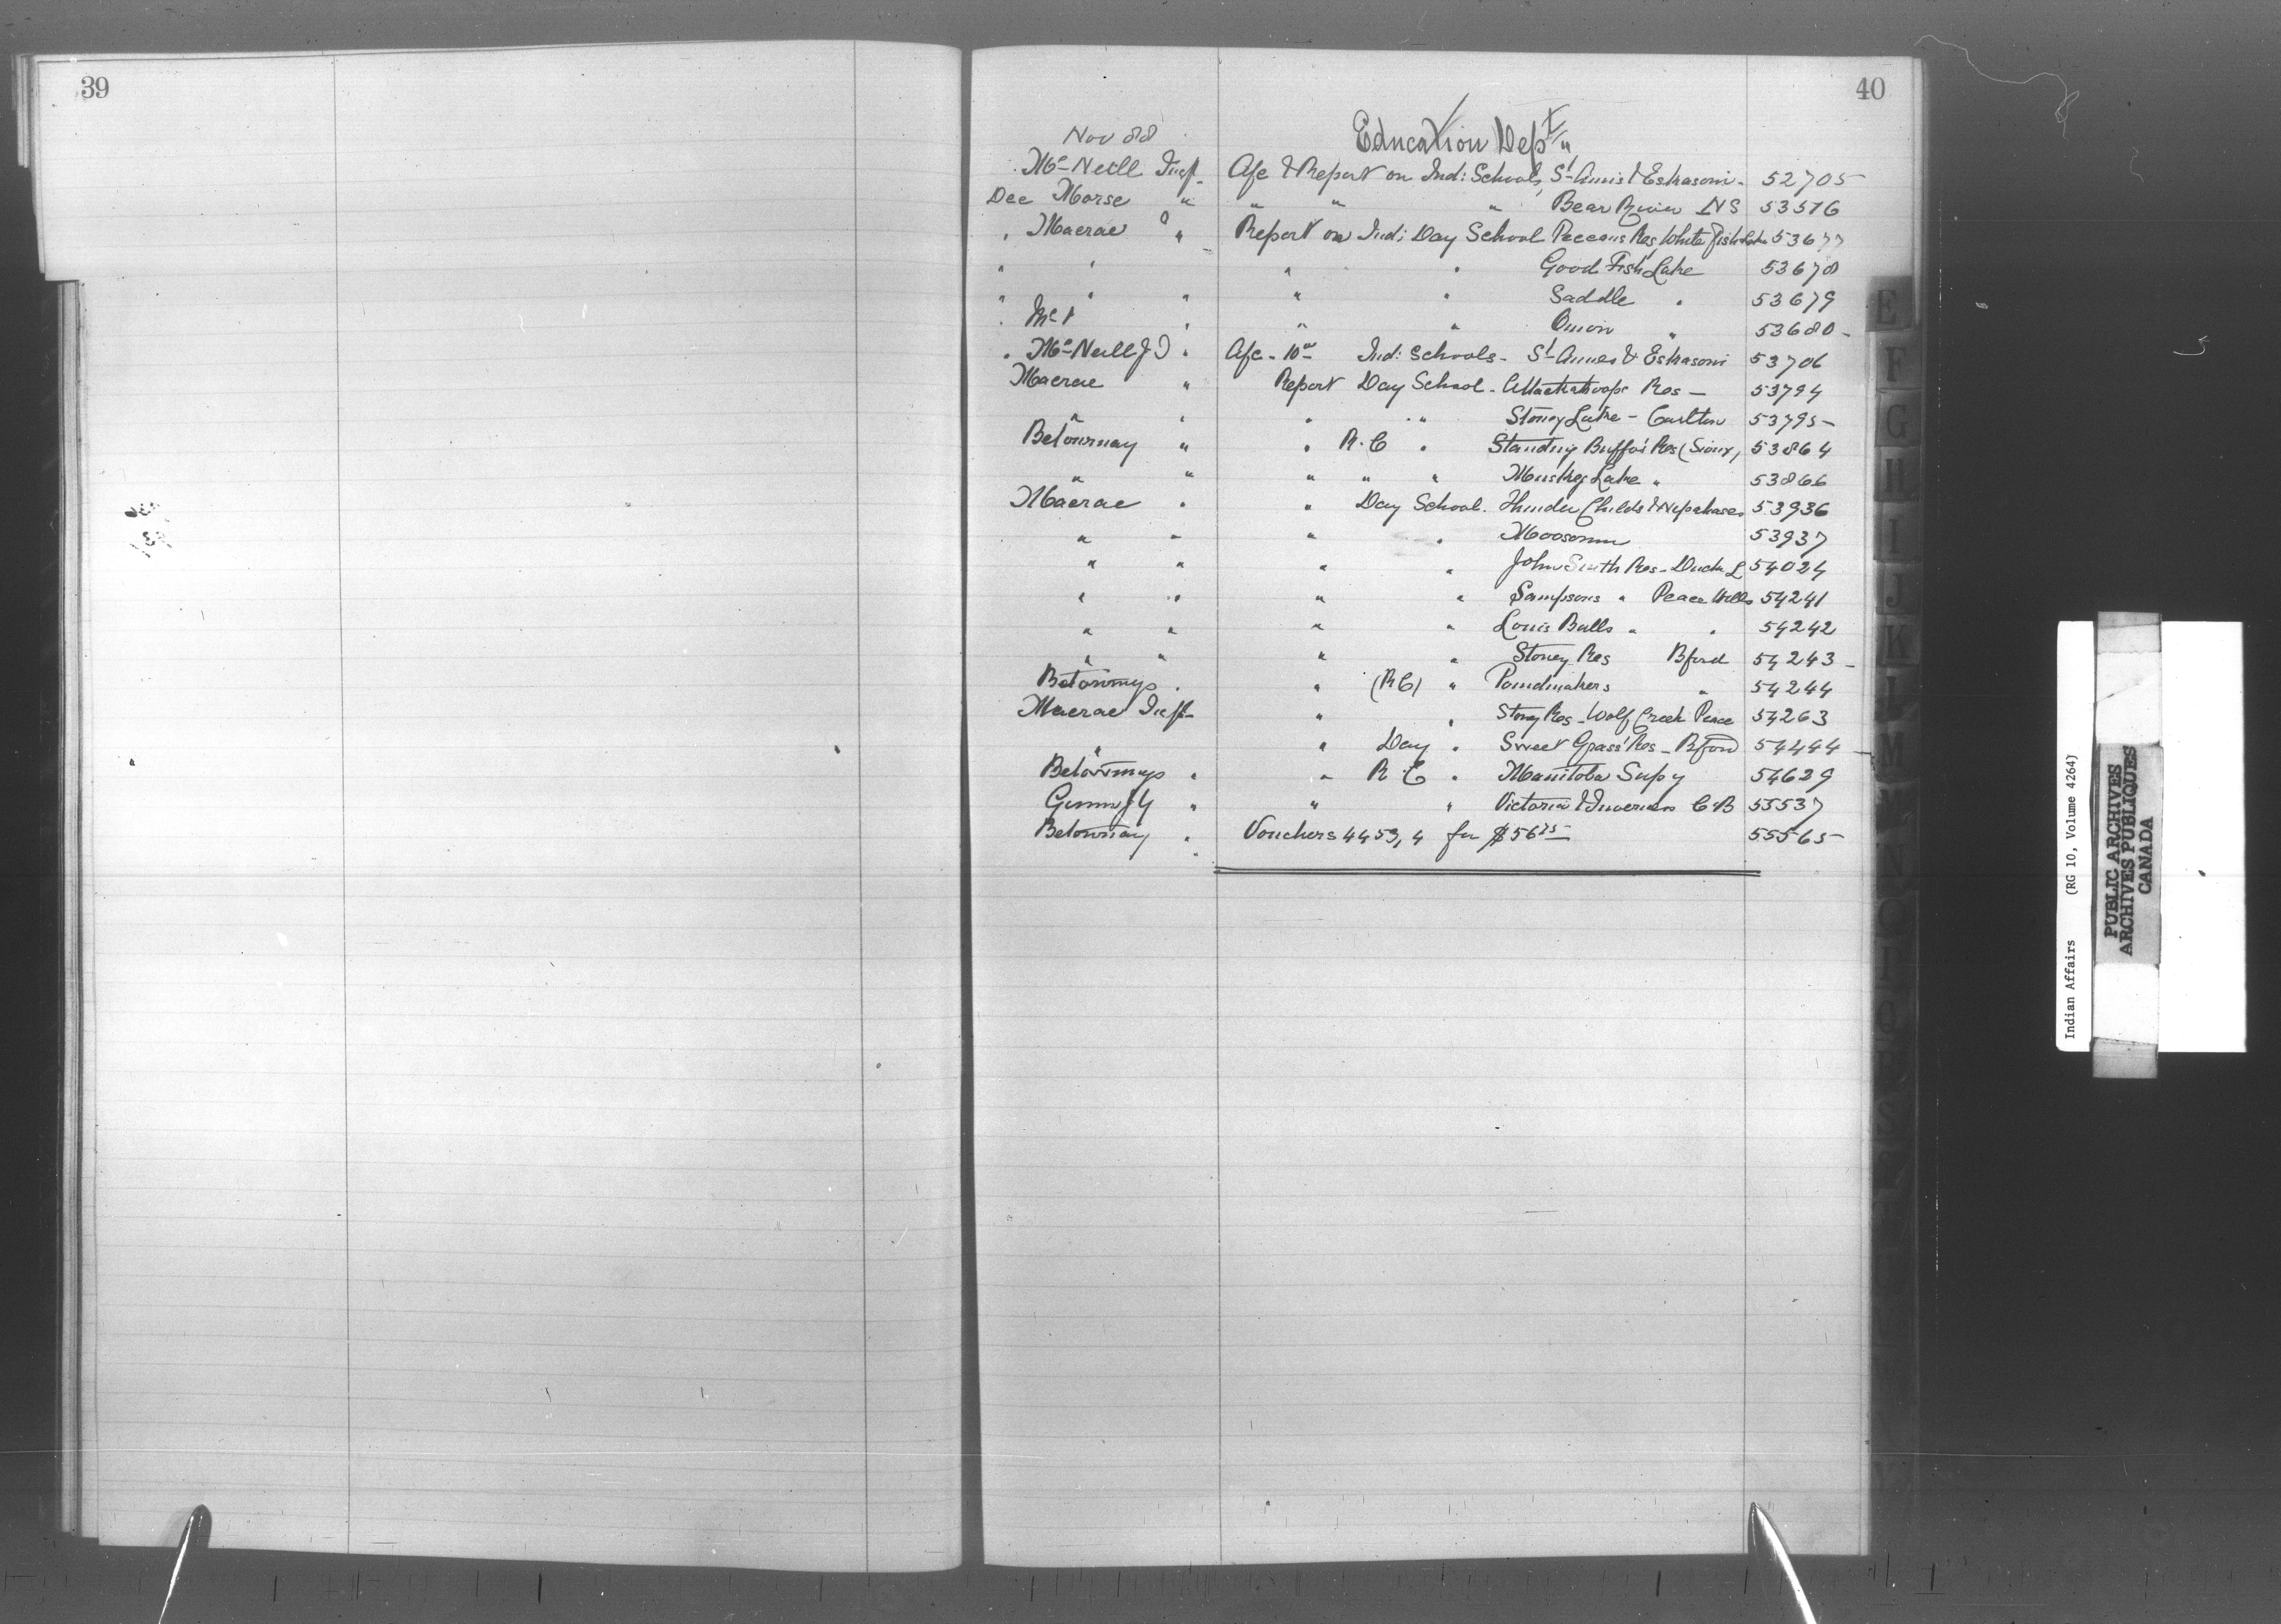 39
40
Nov 88
Education Dept
McNeill Insp A/c & Report on Ind: Schools, St Anns & Eskasoni - 52705
Dec Morse " " " " Bear River NS 53516
" Macrae " Report on Ind: Day School Res White Fish Lake 53677
" " " " Good Fish Lake 53678
" " " " " Saddle " 53679
" " " " Onion " 53680 -
" McNeill J D " A/c - Ind: Schools - St Annes & Eskasoni 53706
Macrae " Report Day School - Res - 53794
" " " " Stoney Lake - Carlton 53795 -
Betournay " " R.C " Standing Buffo' Res (Sioux) 53864
" " " " " Muskeg Lake " 53866
Macrae " " Day School. Thunder Childs & Nepahases 53936
" " " " Moosomin 53937
" " " " John Smith Res - Duck L 54024
" " " " Sampsons " Peace Hills 54241
" " " " Louis Bulls " " 54242
" " " " Stoney Res Bford 54243 -
Betournay " " (RC) " Poundmakers " 54244
Macrae Insp " " Stony Res - Wolf Creek Peace 54263
" " Day " Sweet Grass' Res - Bford 54444 -
Betournay " " R.C " Manitoba Supy 54629
" " " Victoria & Inverness C B 55537
Betournay " Vouchers 4453, 4 for $56 75 55565
E
F
G
H
I
J
K
L
M
Indian Affairs (RG 10, Volume 4264)
PUBLIC ARCHIVES
ARCHIVES PUBLIQUES
CANADA